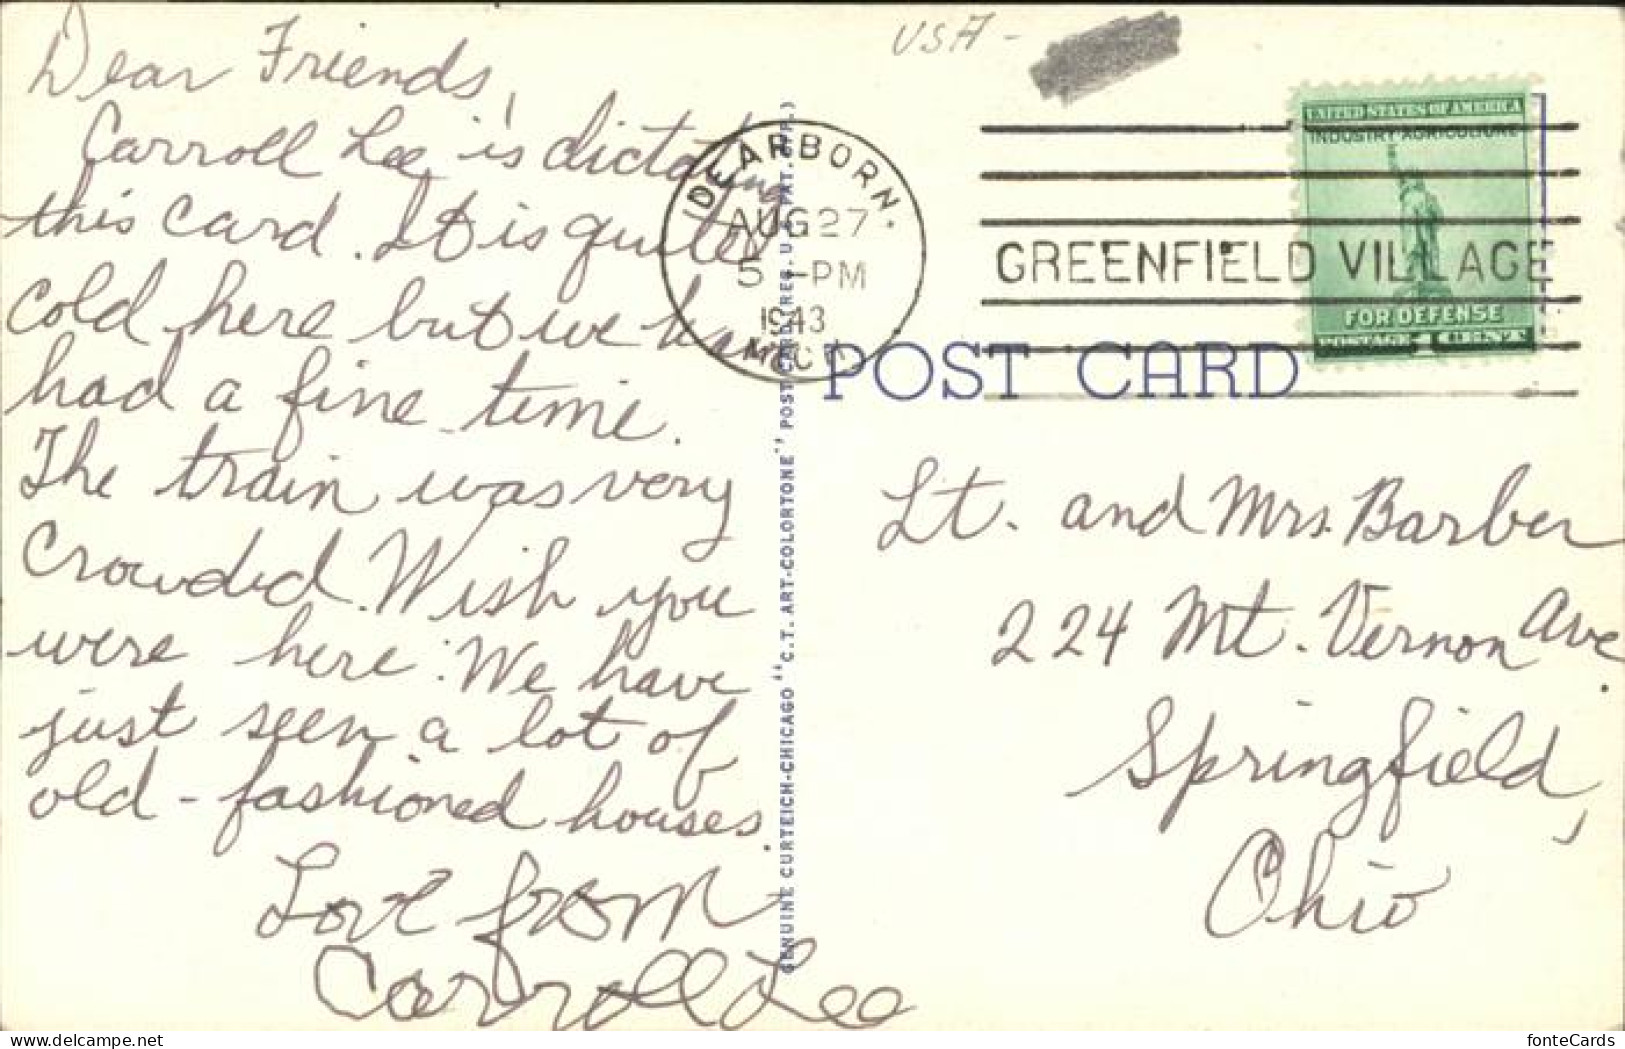 Dear Friends,
Carroll Lee is dictating
this card. It is quite
cold here but we have
had a fine time.
The train was very
crowded. Wish you
were here. We have
just seen a lot of
old-fashioned houses.
Love from
Carroll Lee
USA -
DEARBORN.
AUG 27
5 - PM
1943
MICH
GREENFIELD VILLAGE
UNITED STATES OF AMERICA
INDUSTRY AGRICULTURE
FOR DEFENSE
POSTAGE 1 CENT
POST CARD
GENUINE CURTEICH-CHICAGO "C.T. ART-COLORTONE" POST CARD (REG. U.S. PAT. OFF.)
Lt. and Mrs. Barber
224 Mt. Vernon Ave
Springfield,
Ohio
www.delcampe.net
fonteCards